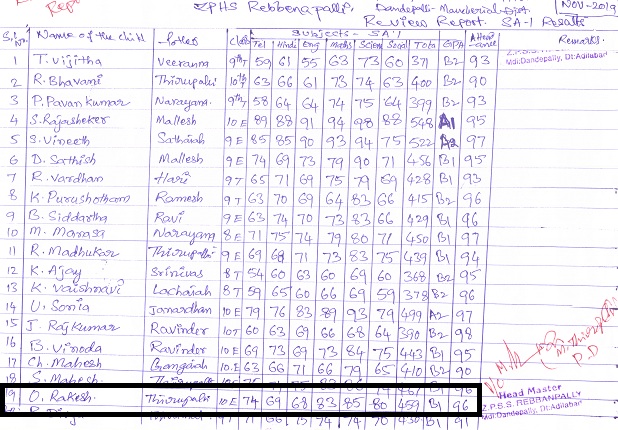 ZPHS Rebbenapalli, Dandepalli - Mancherial - Dist. NOV-2019
Review Report. SA-1 Results
Subjects - SA-1
S.No Name of the child Father Class Tel Hindi Eng maths Scien Social Total GPA Attendance Remarks
1 T. Vijitha Veeranna 9thT 59 61 55 63 73 60 371 B2 93
Z.P.S.S. REBBANPALLY
Mdl:Dandepally, Dt:Adilabad
2 R. Bhavani Thirupathi 10thT 63 66 61 73 74 63 400 B2 90
3 P. Pavan kumar Narayana 9thT 58 64 64 74 75 64 399 B2 93
4 S. Rajasheker Mallesh 10E 89 88 91 94 98 88 548 A1 95
5 S. Vineeth Sathaiah 9E 85 85 90 93 94 75 522 A2 97
6 D. Sathish Mallesh 9E 74 69 73 79 90 71 456 B1 95
7 R. Vardhan Hari 9T 65 71 69 75 79 69 428 B1 93
8 K. Purushotham Ramesh 9T 63 70 69 64 83 66 415 B2 96
9 B. Siddartha Ravi 9E 63 74 70 73 83 66 429 B1 96
10 M. Manasa Narayana 8E 71 75 74 79 80 71 450 B1 97
11 R. Madhukar Thirupathi 9E 69 68 71 73 83 75 439 B1 94
12 K. Ajay Srinivas 8T 54 60 63 60 69 60 368 B2 95
13 K. Vaishnavi Lachaiah 8T 59 65 60 66 69 59 378 B2 96
14 U. Sonia Janardhan 10E 79 76 83 89 93 79 499 A2 97
15 J. Raj kumar Ravinder 10T 60 63 69 66 68 64 390 B2 98
16 B. Vinoda Ravinder 10E 69 73 69 73 84 75 443 B1 95
17 Ch. Mahesh Gangaiah 10E 63 66 71 66 79 65 410 B2 90
18 S. Mahesh
Head Master
19 O. Rakesh Thirupathi 10E 74 69 68 83 85 80 459 B1 96
Z.P.S.S. REBBANPALLY
Mdl:Dandepally, Dt:Adilabad